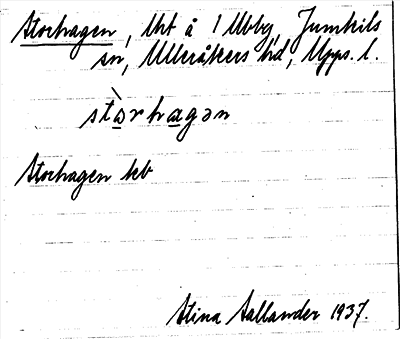 Storhagen, Uht å 1 Ubby, Jumkils
sn, Ulleråkers hd, Upps. l.
stò̱rha̱gən
Storhagen kb
Stina Sallander 1937.